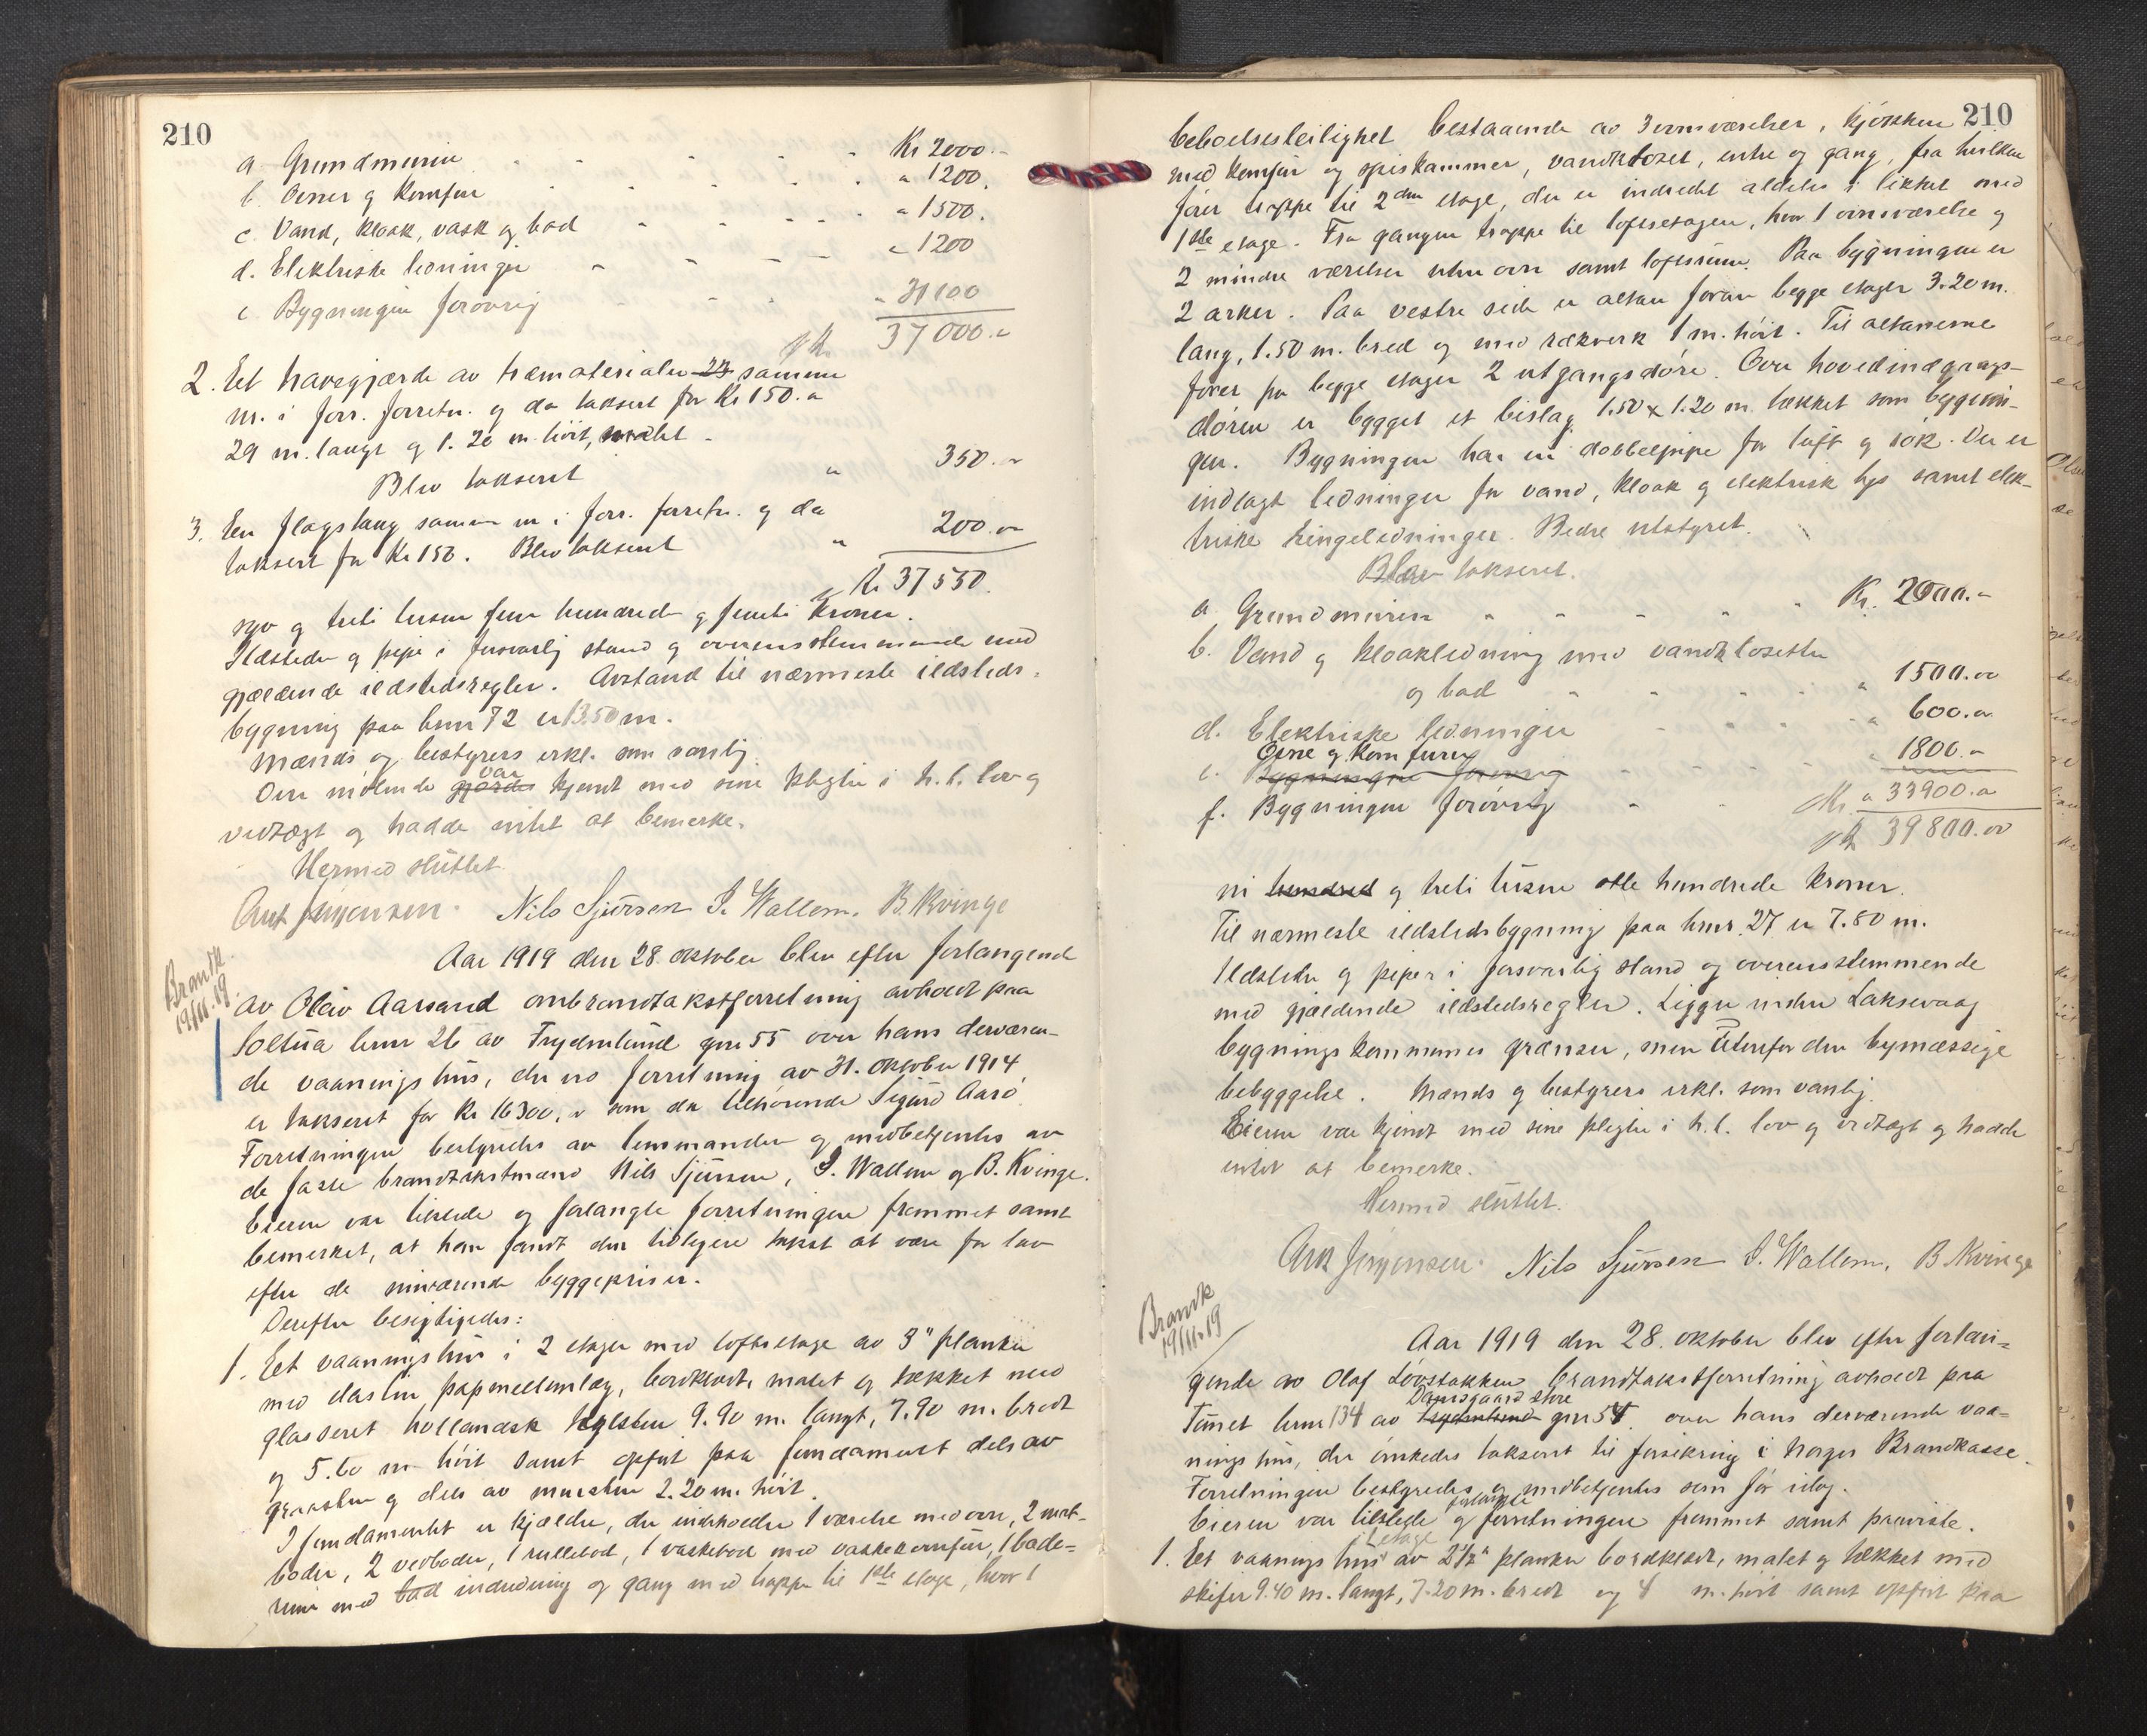 210
a. Grundmuren Kr 2000.-
b. Ovner og komfur " 1200.
c. Vand, kloak, vask og bad " 1500.
d. Elektriske ledninger " 1200
e. Bygningen forøvrig " 31100
37000.-
2. Et havegjærde av træmaterialer 29 samme
nr. i forr. forretn. og da taksert for Kr 150.-
29 m. langt og 1.20 m. høit, malet.
Blev taksert " 350.-
3. En flagstang samme nr i forr. forretn. og da
taksert for Kr 150. Blev taksert " 200.-
Kr 37550.
syv og treti tusen fem hundrede og femti kroner.
Ildsteder og pipe i forsvarlig stand og overensstemmende med
gjældende ildstedsregler. Avstand til nærmeste ildsteds-
bygning paa bnr 72 er 13.50 m.
Mænds og bestyrers erkl. som vanlig.
Den møtende gjordes var kjendt med sine pligter i h. t. lov og
vedtægt og hadde intet at bemerke.
Hermed sluttet
Ant Jørgensen. Nils Sjursen I. Wallem. B. Kvinge
Brandk.
19/11.19.
Aar 1919 den 28. oktober blev efter forlangende
av Olav Aarsand ombrandtakstforretning avholdt paa
Soltua bnr 26 av Frydenlund gnr 55 over hans derværen-
de vaaningshus, der ved forretning av 31. oktober 1914
er taksert for Kr 16300,- som da tilhørende Sigurd Aasø.
Forretningen bestyredes av lensmanden og medbetjentes av
de faste brandtakstmænd Nils Sjursen, I. Wallem og B. Kvinge.
Eieren var tilstede og forlangte forretningen fremmet samt
bemerket, at han fandt den tidligere takst at være for lav
efter de nuværende byggepriser.
Derefter besigtigedes:
1. Et vaaningshus i 2 etager med loftsetage av 3" planker
med papmellemlæg, bordklædt, malet og tækket med
glasseret hollandsk taksten 9.90 m. langt, 7.90 m. bredt
og 5.60 m høit samt opført paa fundament dels av
graasten og dels av mursten 2.20 m. høit.
I fundamentet er kjælder, der indeholder 1 værelse med ovn, 2 mat-
boder, 2 vedboder, 1 rullebod, 1 vaskebod med vaskekomfur, 1 bade-
rum med bad indredning og gang med trappe til 1ste etage, hvor 1
210
beboelsesleilighet bestaaende av 3 ovnsværelser, kjøkken
med komfur og spiskammer, vandkloset, entre og gang, fra hvilken
fører trappe til 2den etage, der er indredet aldeles i likhet med
1ste etage. Fra gangen trappe til loftsetagen, hvor 1 ovnsværelse og
2 mindre værelser uten ovn samt loftsrum. Paa bygningen er
2 arker. Paa vestre side er altan foran begge etager 3.20 m.
lang, 1.50 m. bred og med rækverk 1 m. høit. Til altanerne
fører fra begge etager 2 utgangsdøre. Over hovedindgangs-
døren er bygget et bislag 1.50 x 1.20 m. tækket som bygnin-
gen. Bygningen har en dobbeltpipe for luft og røk. Der er
indlagt ledninger for vand, kloak og elektrisk lys samt elek-
triske ringeledninger. Bedre utstyret.
Blev taksert.
a. Grundmuren Kr. 2000.-
b. Vand og kloakledning med vandklosetter
og bad " 1500.00
d. Elektriske ledninger " 600.-
e. Bygningen forøvrig Ovne og komfurer 1800.-
f. Bygningen forøvrig " 33900.-
39800.00
ni hundred og treti tusen otte hundrede kroner.
Til nærmeste ildstedsbygning paa bnr. 27 er 7.80 m.
Ildsteder og piper i forsvarlig stand og overensstemmende
med gjældende ildstedsregler. Ligger inden Laksevaag
bygningskommunes grænser, men utenfor den bymæssige
bebyggelse. Mænds og bestyrers erkl. som vanlig.
Eieren var kjendt med sine pligter i h. t. lov og vedtægt og hadde
intet at bemerke.
Hermed sluttet.
Ant Jørgensen. Nils Sjursen I. Wallem. B. Kvinge
Brandk
19/11.19
Aar 1919 den 28. oktober blev efter forlan-
gende av Olaf Løvstakken brandtakstforretning avholdt paa
Tunet bnr 134 av Frydenlund Damsgaard store gnr 54 over hans derværende vaa-
ningshus, der ønskedes taksert til forsikring i Norges Brandkasse.
Forretningen bestyredes og medbetjentes som før idag.
Eieren var tilstede og forlangte forretningen fremmet samt paaviste.
1. Et vaaningshus 1 etage av 2½" planker bordklædt, malet og tækket med
skifer 9.40 m. langt, 7.20 m. bredt og 4 m. høit samt opført paa